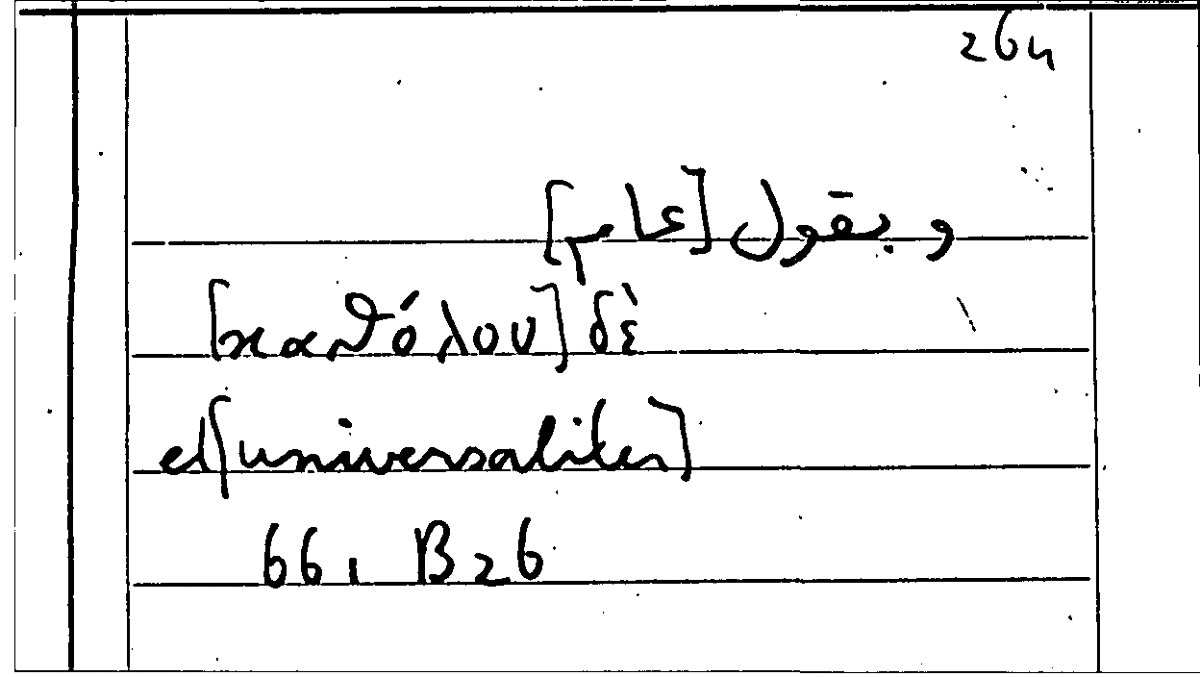 264
و بقول [عام]
[καθόλου] δὲ
et [universaliter]
66, B26